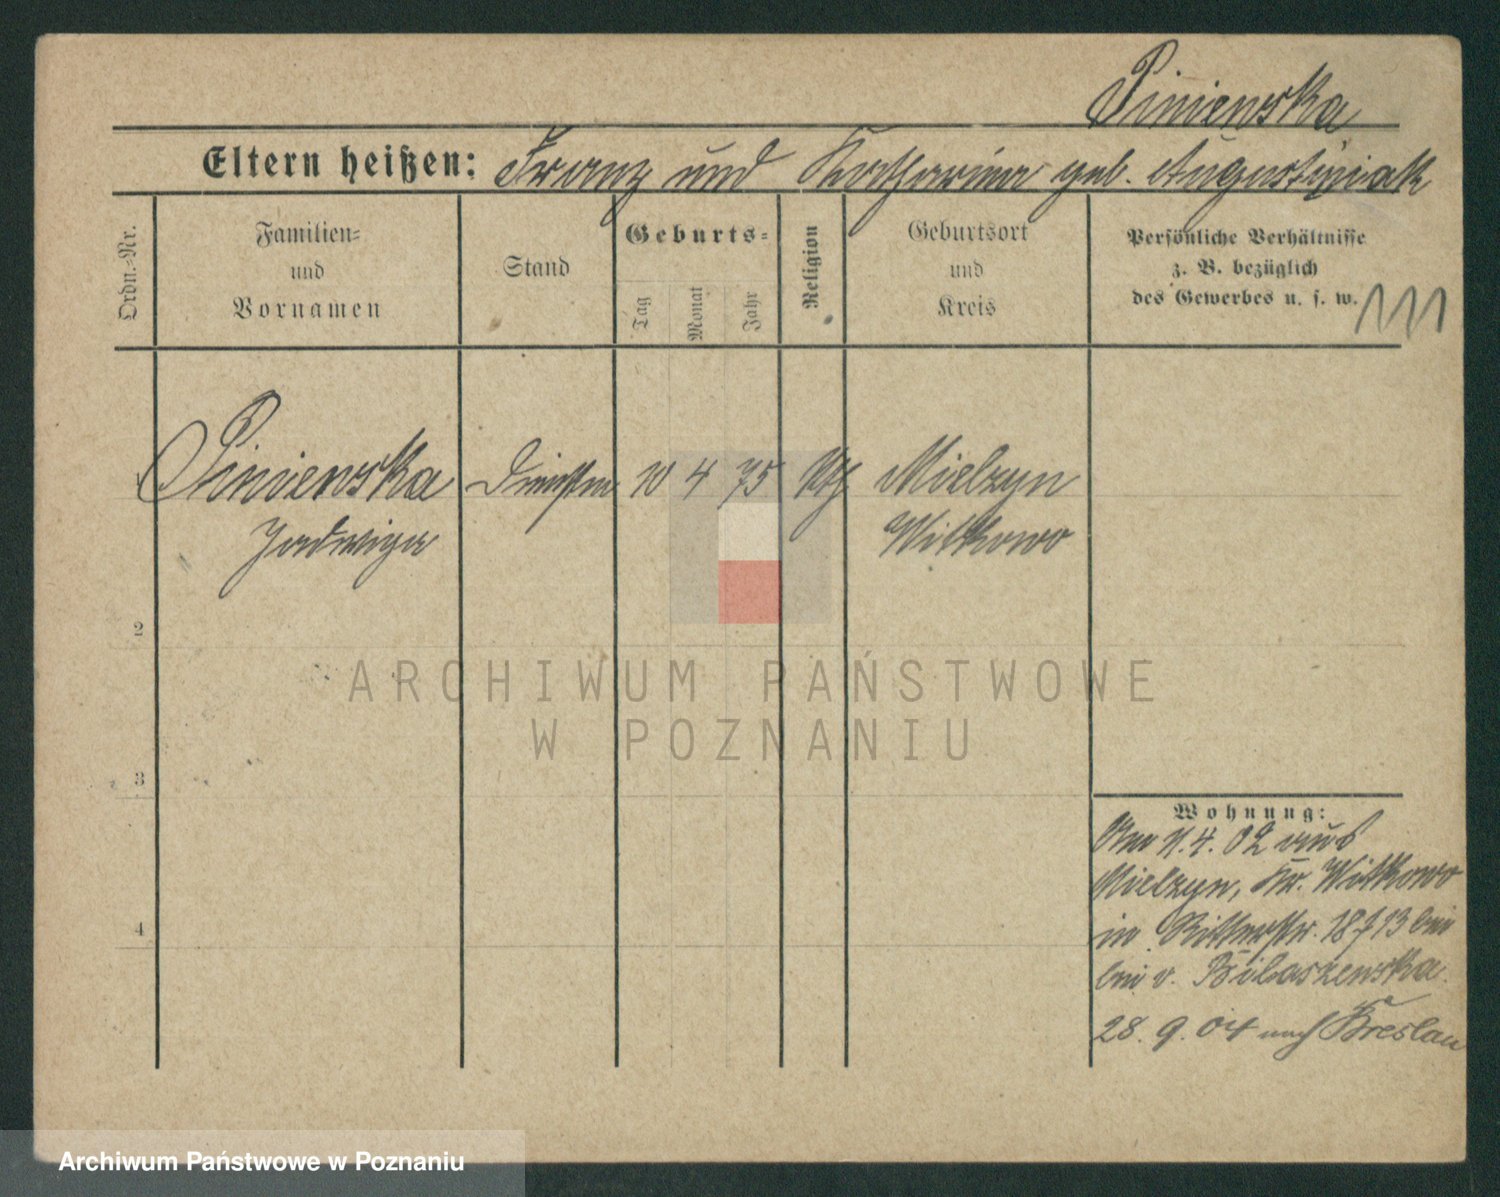 Piniewska
Eltern heißen: Franz und Katharina geb. Augustyniak
Ordn.-Nr.
Familien-
und
Vornamen
Stand
Geburts-
Tag
Monat
Jahr
Religion
Geburtsort
und
Kreis
Persönliche Verhältnisse
z. B. bezüglich
des Gewerbes u. s. w.
Piniewska
10 4 75 kth Mielzyn
Jadwiga Witkowo
2
3
4
Wohnung:
Am 11.4.02 aus
Mielzyn, Kr. Witkowo
in Ritterstr. 18
bei v.
28. 9. 04 nach Breslau
ARCHIWUM PAŃSTWOWE
W POZNANIU
Archiwum Państwowe w Poznaniu